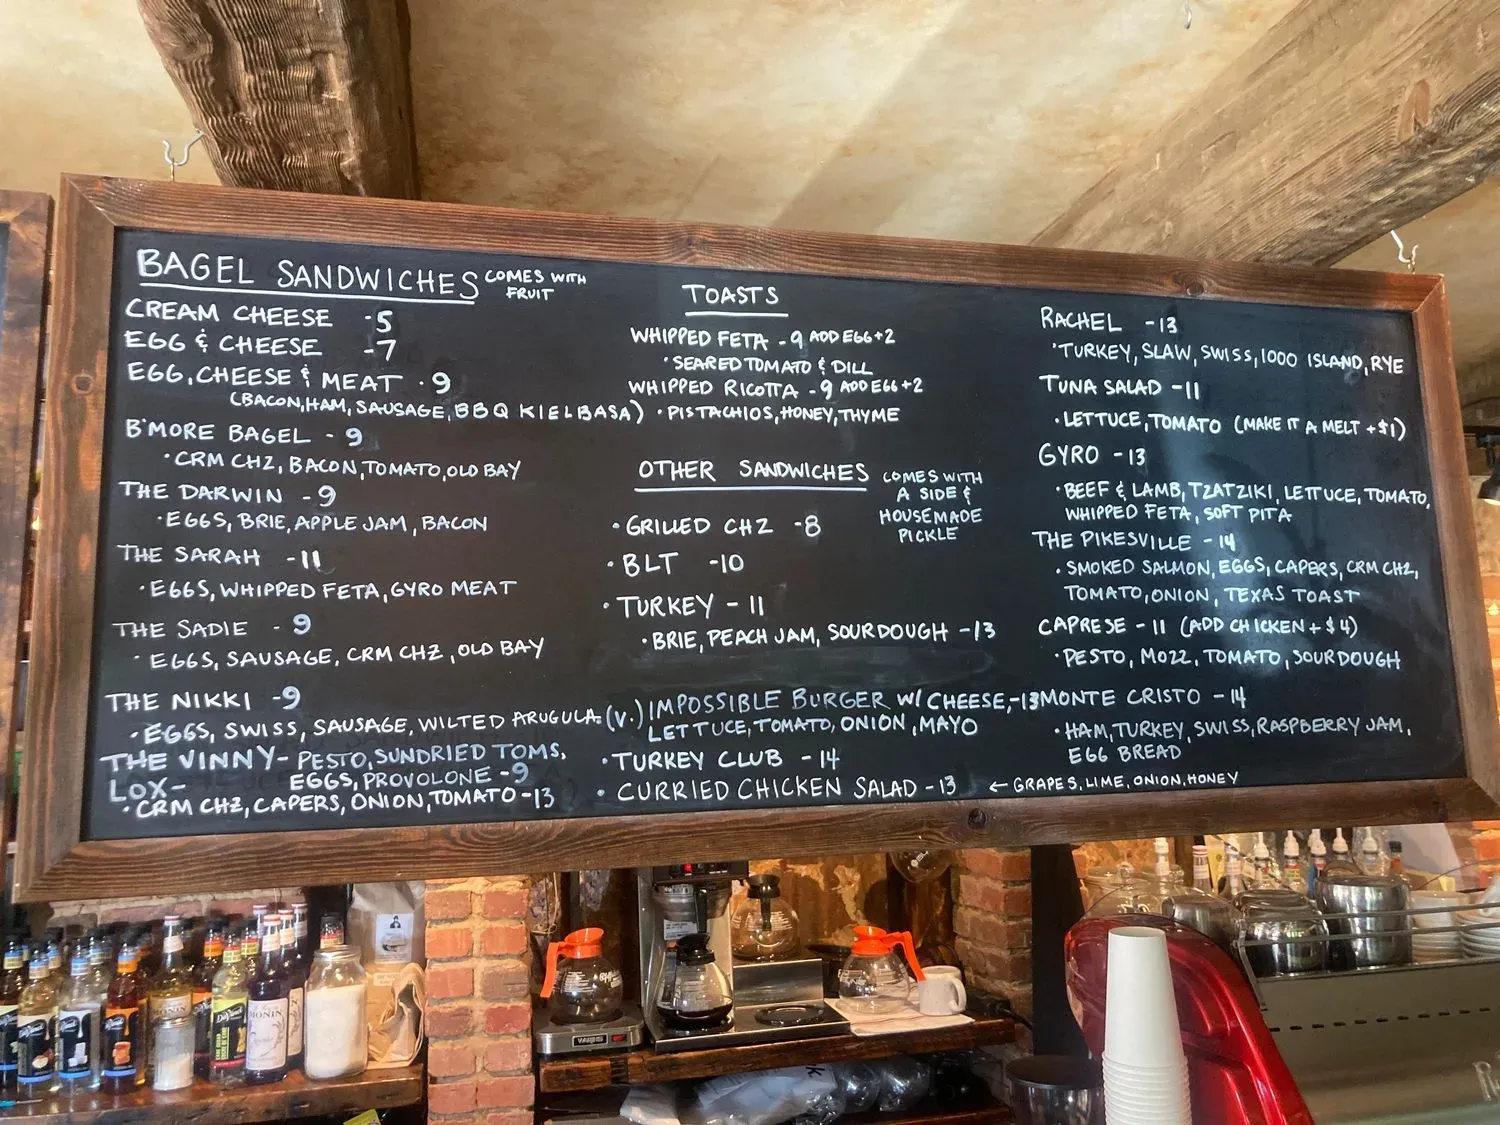 BAGEL SANDWICHES COMES WITH
FRUIT
CREAM CHEESE -5
EGG & CHEESE -7
EGG, CHEESE & MEAT -9
(BACON, HAM, SAUSAGE, BBQ KIELBASA)
B'MORE BAGEL - 9
• CRM CHZ, BACON, TOMATO, OLD BAY
THE DARWIN - 9
• EGGS, BRIE, APPLE JAM, BACON
THE SARAH - 11
• EGGS, WHIPPED FETA, GYRO MEAT
THE SADIE - 9
• EGGS, SAUSAGE, CRM CHZ, OLD BAY
THE NIKKI - 9
• EGGS, SWISS, SAUSAGE, WILTED ARUGULA
THE VINNY - PESTO, SUNDRIED TOMS,
EGGS, PROVOLONE - 9
LOX -
• CRM CHZ, CAPERS, ONION, TOMATO - 13
TOASTS
WHIPPED FETA - 9 ADD EGG +2
• SEARED TOMATO & DILL
WHIPPED RICOTTA - 9 ADD EGG +2
• PISTACHIOS, HONEY, THYME
OTHER SANDWICHES
COMES WITH
A SIDE &
HOUSEMADE
PICKLE
• GRILLED CHZ - 8
• BLT - 10
• TURKEY - 11
• BRIE, PEACH JAM, SOURDOUGH - 13
(V.) IMPOSSIBLE BURGER W/ CHEESE, - 13
LETTUCE, TOMATO, ONION, MAYO
• TURKEY CLUB - 14
• CURRIED CHICKEN SALAD - 13 ← GRAPES, LIME, ONION, HONEY
RACHEL - 13
• TURKEY, SLAW, SWISS, 1000 ISLAND, RYE
TUNA SALAD - 11
• LETTUCE, TOMATO (MAKE IT A MELT +$1)
GYRO - 13
• BEEF & LAMB, TZATZIKI, LETTUCE, TOMATO,
WHIPPED FETA, SOFT PITA
THE PIKESVILLE - 14
• SMOKED SALMON, EGGS, CAPERS, CRM CHZ,
TOMATO, ONION, TEXAS TOAST
CAPRESE - 11 (ADD CHICKEN + $4)
• PESTO, MOZZ, TOMATO, SOURDOUGH
MONTE CRISTO - 14
• HAM, TURKEY, SWISS, RASPBERRY JAM,
EGG BREAD
MONIN